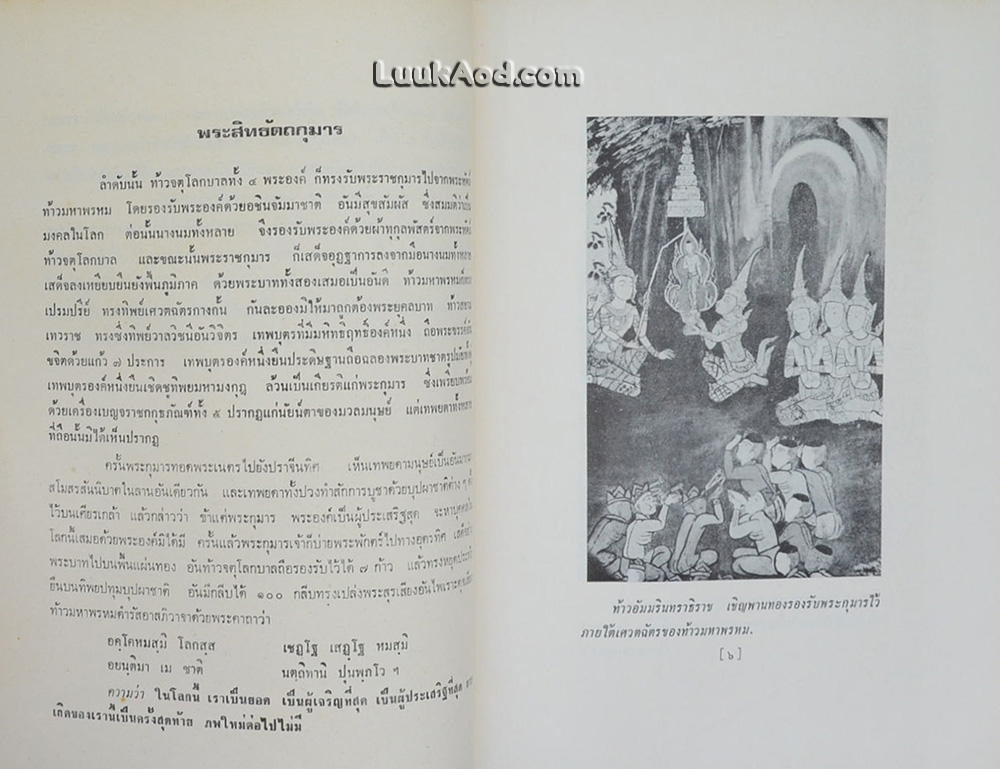 LuukAod.com
พระสิทธัตถกุมาร
ลำดับนั้น ท้าวจตุโลกบาลทั้ง ๔ พระองค์ ก็ทรงรับพระราชกุมารไปจากพระหัตถ์
ท้าวมหาพรหม โดยรองรับพระองค์ด้วยอชินจัมมาชาติ อันมีสุขสัมผัส ซึ่งสมมติว่าเป็น
มงคลในโลก ต่อนั้นนางนมทั้งหลาย จึงรองรับพระองค์ด้วยผ้าทุกุลพัสตร์จากพระหัตถ์
ท้าวจตุโลกบาล และขณะนั้นพระราชกุมาร ก็เสด็จอุฏฐาการลงจากมือนางนมทั้งหลาย
เสด็จลงเหยียบยืนยังพื้นภูมิภาค ด้วยพระบาททั้งสองเสมอเป็นอันดี ท้าวมหาพรหม
เปรมปรีย์ ทรงทิพย์เศวตฉัตรกางกั้น กันละอองมิให้มาถูกต้องพระยุคลบาท ท้าวสยาม
เทวราช ทรงซึ่งทิพย์วาลวิชนีอันวิจิตร เทพบุตรที่มีมหิทธิฤทธิ์องค์หนึ่ง ถือพระขรรค์อัน
ขจิตด้วยแก้ว ๗ ประการ เทพบุตรองค์หนึ่งยืนประดิษฐานถือฉลองพระบาทชาตรูปมัย
เทพบุตรองค์หนึ่งยืนเชิดชูทิพยมหามงกุฎ ล้วนเป็นเกียรติแก่พระกุมาร ซึ่งเพรียบพร้อม
ด้วยเครื่องเบญจราชกกุธภัณฑ์ทั้ง ๕ ปรากฏแก่นัยน์ตาของมวลมนุษย์ แต่เทพยดาทั้งหลาย
ที่ถือนั้นมิได้เห็นปรากฏ
ครั้นพระกุมารทอดพระเนตรไปยังปราจีนทิศ เห็นเทพยดามนุษย์เป็นอันมาก
สโมสรสันนิบาตในลานอันเดียวกัน และเทพยดาทั้งปวงทำสักการบูชาด้วยบุปผาชาติต่าง ๆ ตั้ง
ไว้บนเศียรเกล้า แล้วกล่าวว่า ข้าแต่พระกุมาร พระองค์เป็นผู้ประเสริฐสุด จะหาบุคคลใน
โลกนี้เสมอด้วยพระองค์มิได้มี ครั้นแล้วพระกุมารเจ้าก็บ่ายพระพักตร์ไปทางอุดรทิศ เสด็จ
พระบาทไปบนพื้นแผ่นทอง อันท้าวจตุโลกบาลถือรองรับไว้ได้ ๗ ก้าว แล้วทรงหยุด
ยืนบนทิพยปทุมบุปผาชาติ อันมีกลีบได้ ๑๐๐ กลีบทรงเปล่งพระสุรเสียงอันไพเราะ
ท้าวมหาพรหมดำรัสอาสภิวาจาด้วยพระคาถาว่า
อคฺโคหมสฺมิ โลกสฺส เชฏฺโฐ เสฏฺโฐ หมสฺมิ
อยนฺติมา เม ชาติ นตฺถิทานิ ปุนพฺภโว ฯ
ความว่า ในโลกนี้ เราเป็นยอด เป็นผู้เจริญที่สุด เป็นผู้ประเสริฐที่สุด
เกิดของเรานี้เป็นครั้งสุดท้าย ภพใหม่ต่อไปไม่มี
ท้าวอัมมรินทราธิราช เชิญพานทองรองรับพระกุมารไว้
ภายใต้เศวตฉัตรของท้าวมหาพรหม.
[๖]